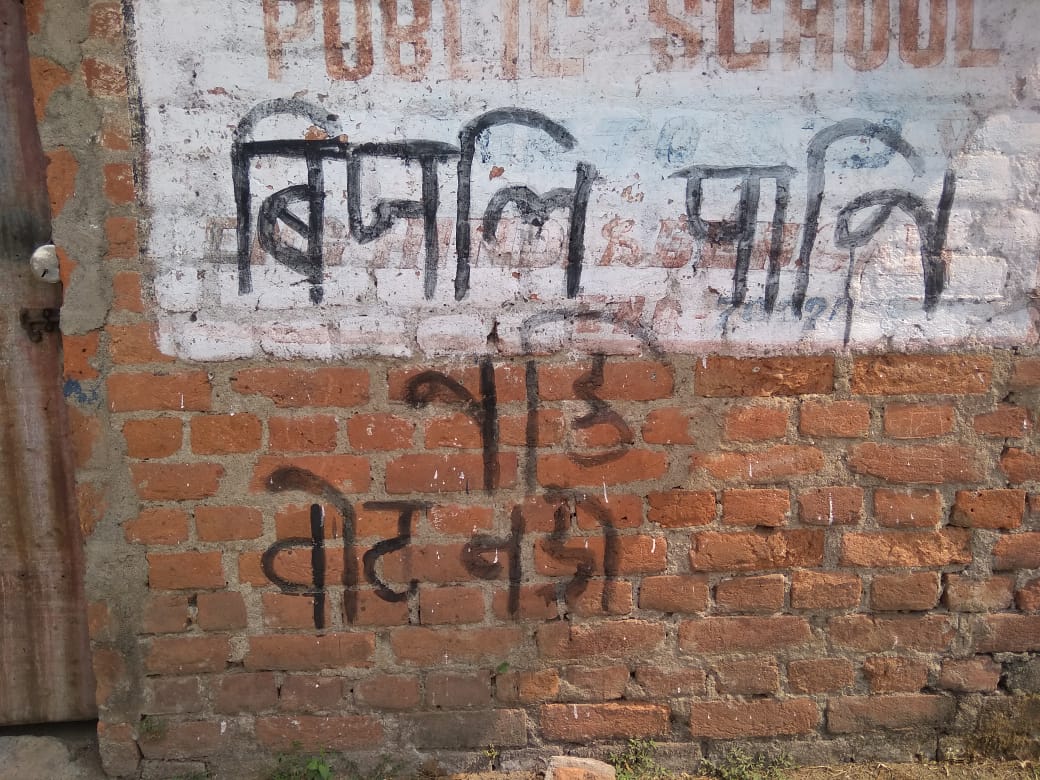 PUBLIC SCHOOL
बिजलि पानि
नहि
वोट नही